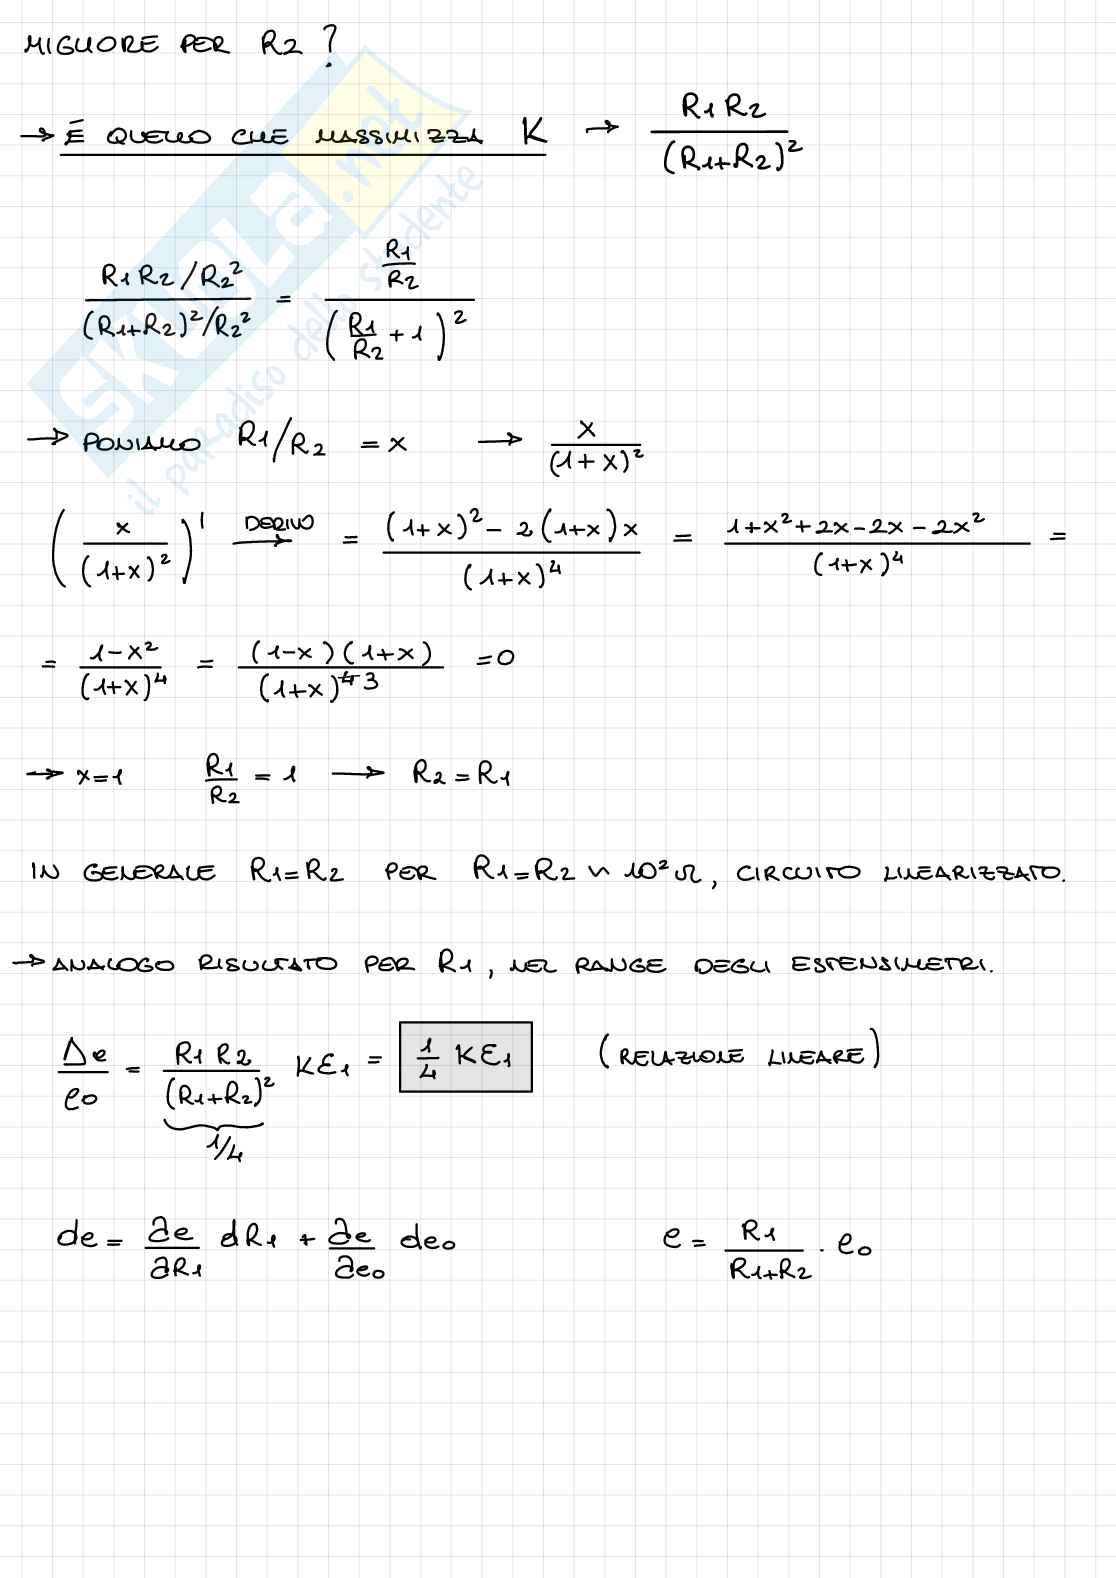 MIGLIORE PER R2 ?
→ É QUELLO CHE MASSIMIZZA K → R1 R2 / (R1+R2)²
R1 R2 / R2² / (R1+R2)² / R2² = R1/R2 / (R1/R2 + 1)²
→ PONIAMO R1/R2 = x → x / (1+x)²
(x / (1+x)²)' DERIVO → = (1+x)² - 2(1+x)x / (1+x)⁴ = 1+x²+2x-2x-2x² / (1+x)⁴ =
= 1-x² / (1+x)⁴ = (1-x)(1+x) / (1+x)⁴ ³ = 0
→ x=1 R1/R2 = 1 → R2 = R1
IN GENERALE R1=R2 PER R1=R2 ~ 10² Ω, CIRCUITO LINEARIZZATO.
→ ANALOGO RISULTATO PER R1, NEL RANGE DEGLI ESTENSIMETRI.
Δe / e0 = R1 R2 / (R1+R2)² Kε1 = 1/4 Kε1 (RELAZIONE LINEARE)
1/4
de = ∂e/∂R1 dR1 + ∂e/∂e0 de0 e = R1 / R1+R2 · e0
SKUOLA.net
il paradiso dello studente